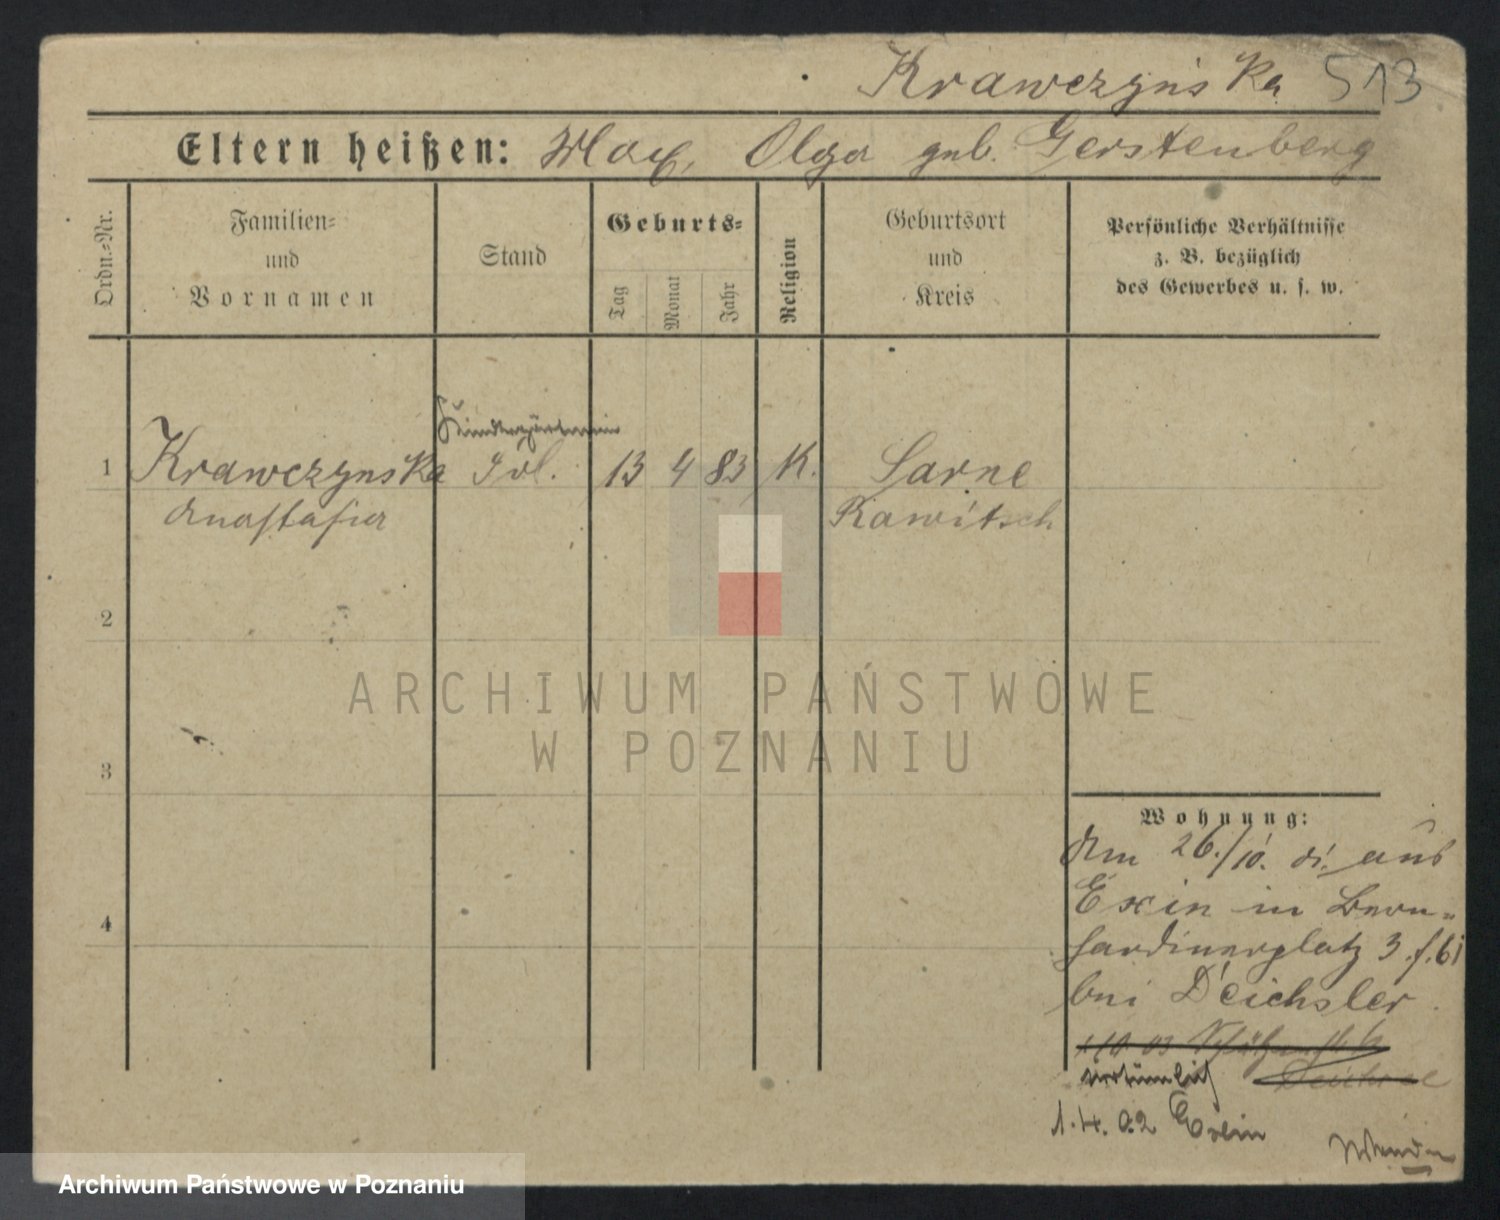 Krawczyńska 513
Eltern heißen: Max, Olga geb. Gerstenberg
Ordn.-Nr.
Familien-
und
Vornamen
Stand
Geburts-
Tag
Monat
Jahr
Religion
Geburtsort
und
Kreis
Persönliche Verhältnisse
z. B. bezüglich
des Gewerbes u. s. w.
Kindergärtnerin
1 Krawczynska 13 4 83 K. Sarne
Anastasia Rawitsch
2
ARCHIWUM PAŃSTWOWE
W POZNANIU
3
Wohnung:
Am 26./10. 01. aus
4
Exin in Bern-
hardinerplatz 3
bei Deichsler
1/10 03
irrtümlich
1.4.02 Exin
Archiwum Państwowe w Poznaniu